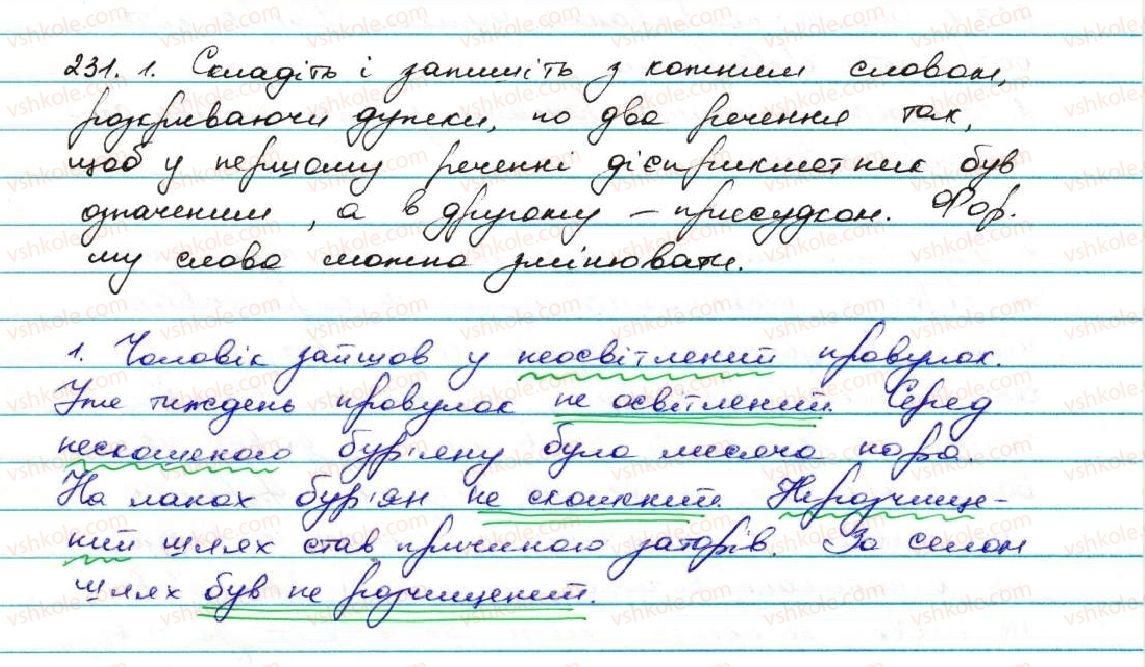 231. 1. Складіть і запишіть з кожним словом,
розкриваючи дужки, по два речення так,
щоб у першому реченні дієприкметник був
означенням, а в другому – присудком. Фор-
му слова можна змінювати.
1. Чоловік зайшов у неосвітлений провулок.
Уже тиждень провулок не освітлений. Серед
нескошеного бур'яну була лисяча нора.
На ланах бур'ян не скошений. Нерозчище-
ний шлях став причиною заторів. За селом
шлях був не розчищений.
vshkole.com